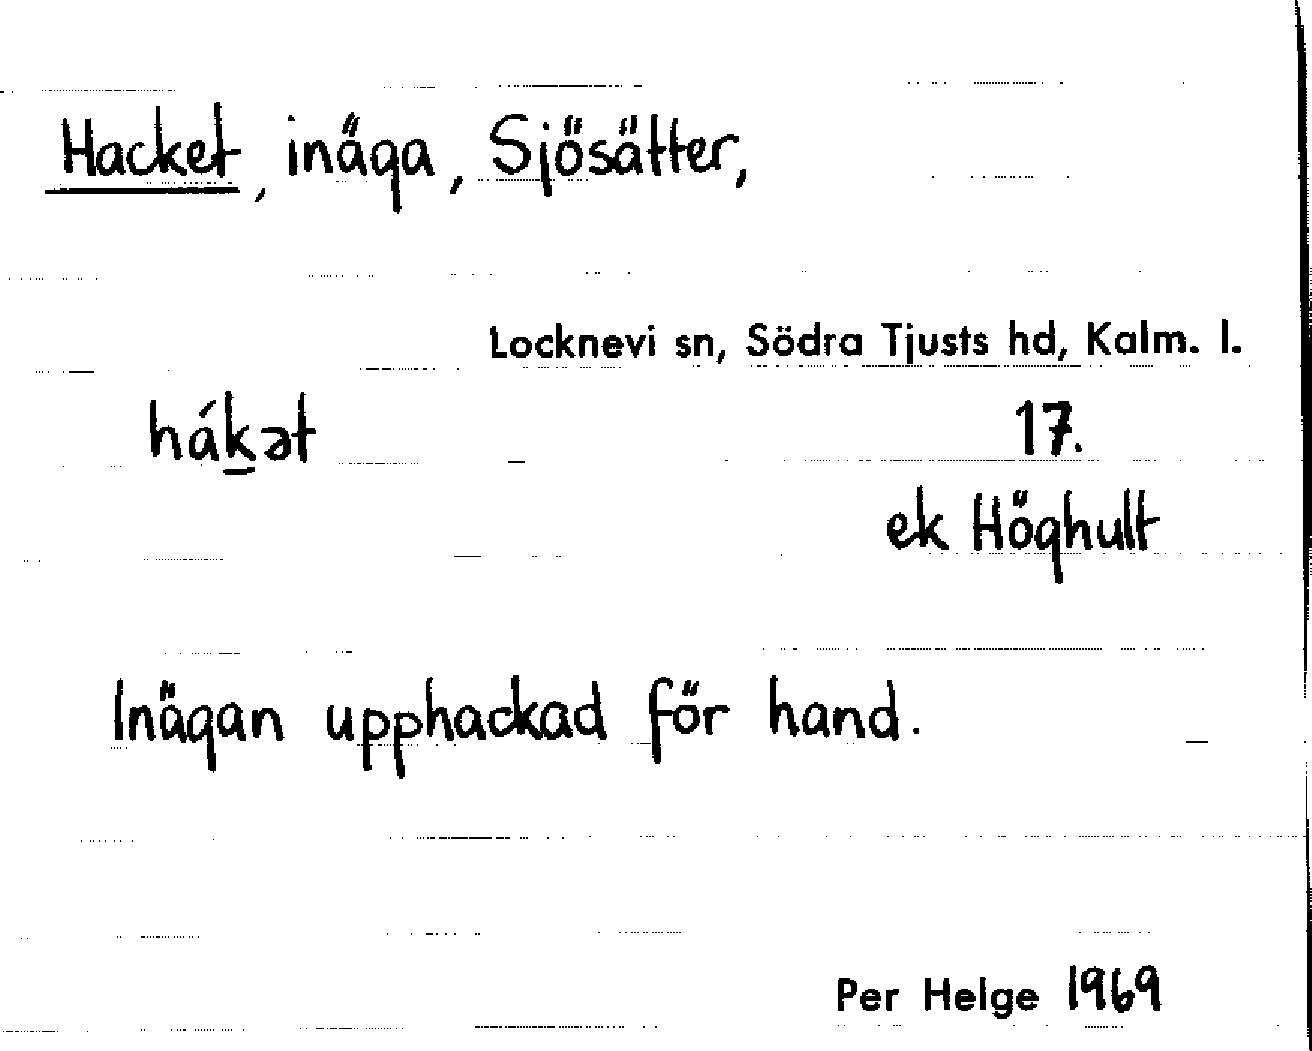 Hacket, inäga, Sjösätter,
Locknevi sn, Södra Tjusts hd, Kalm. l.
hák̲ət
17.
ek Höghult
Inägan upphackad för hand.
Per Helge 1969